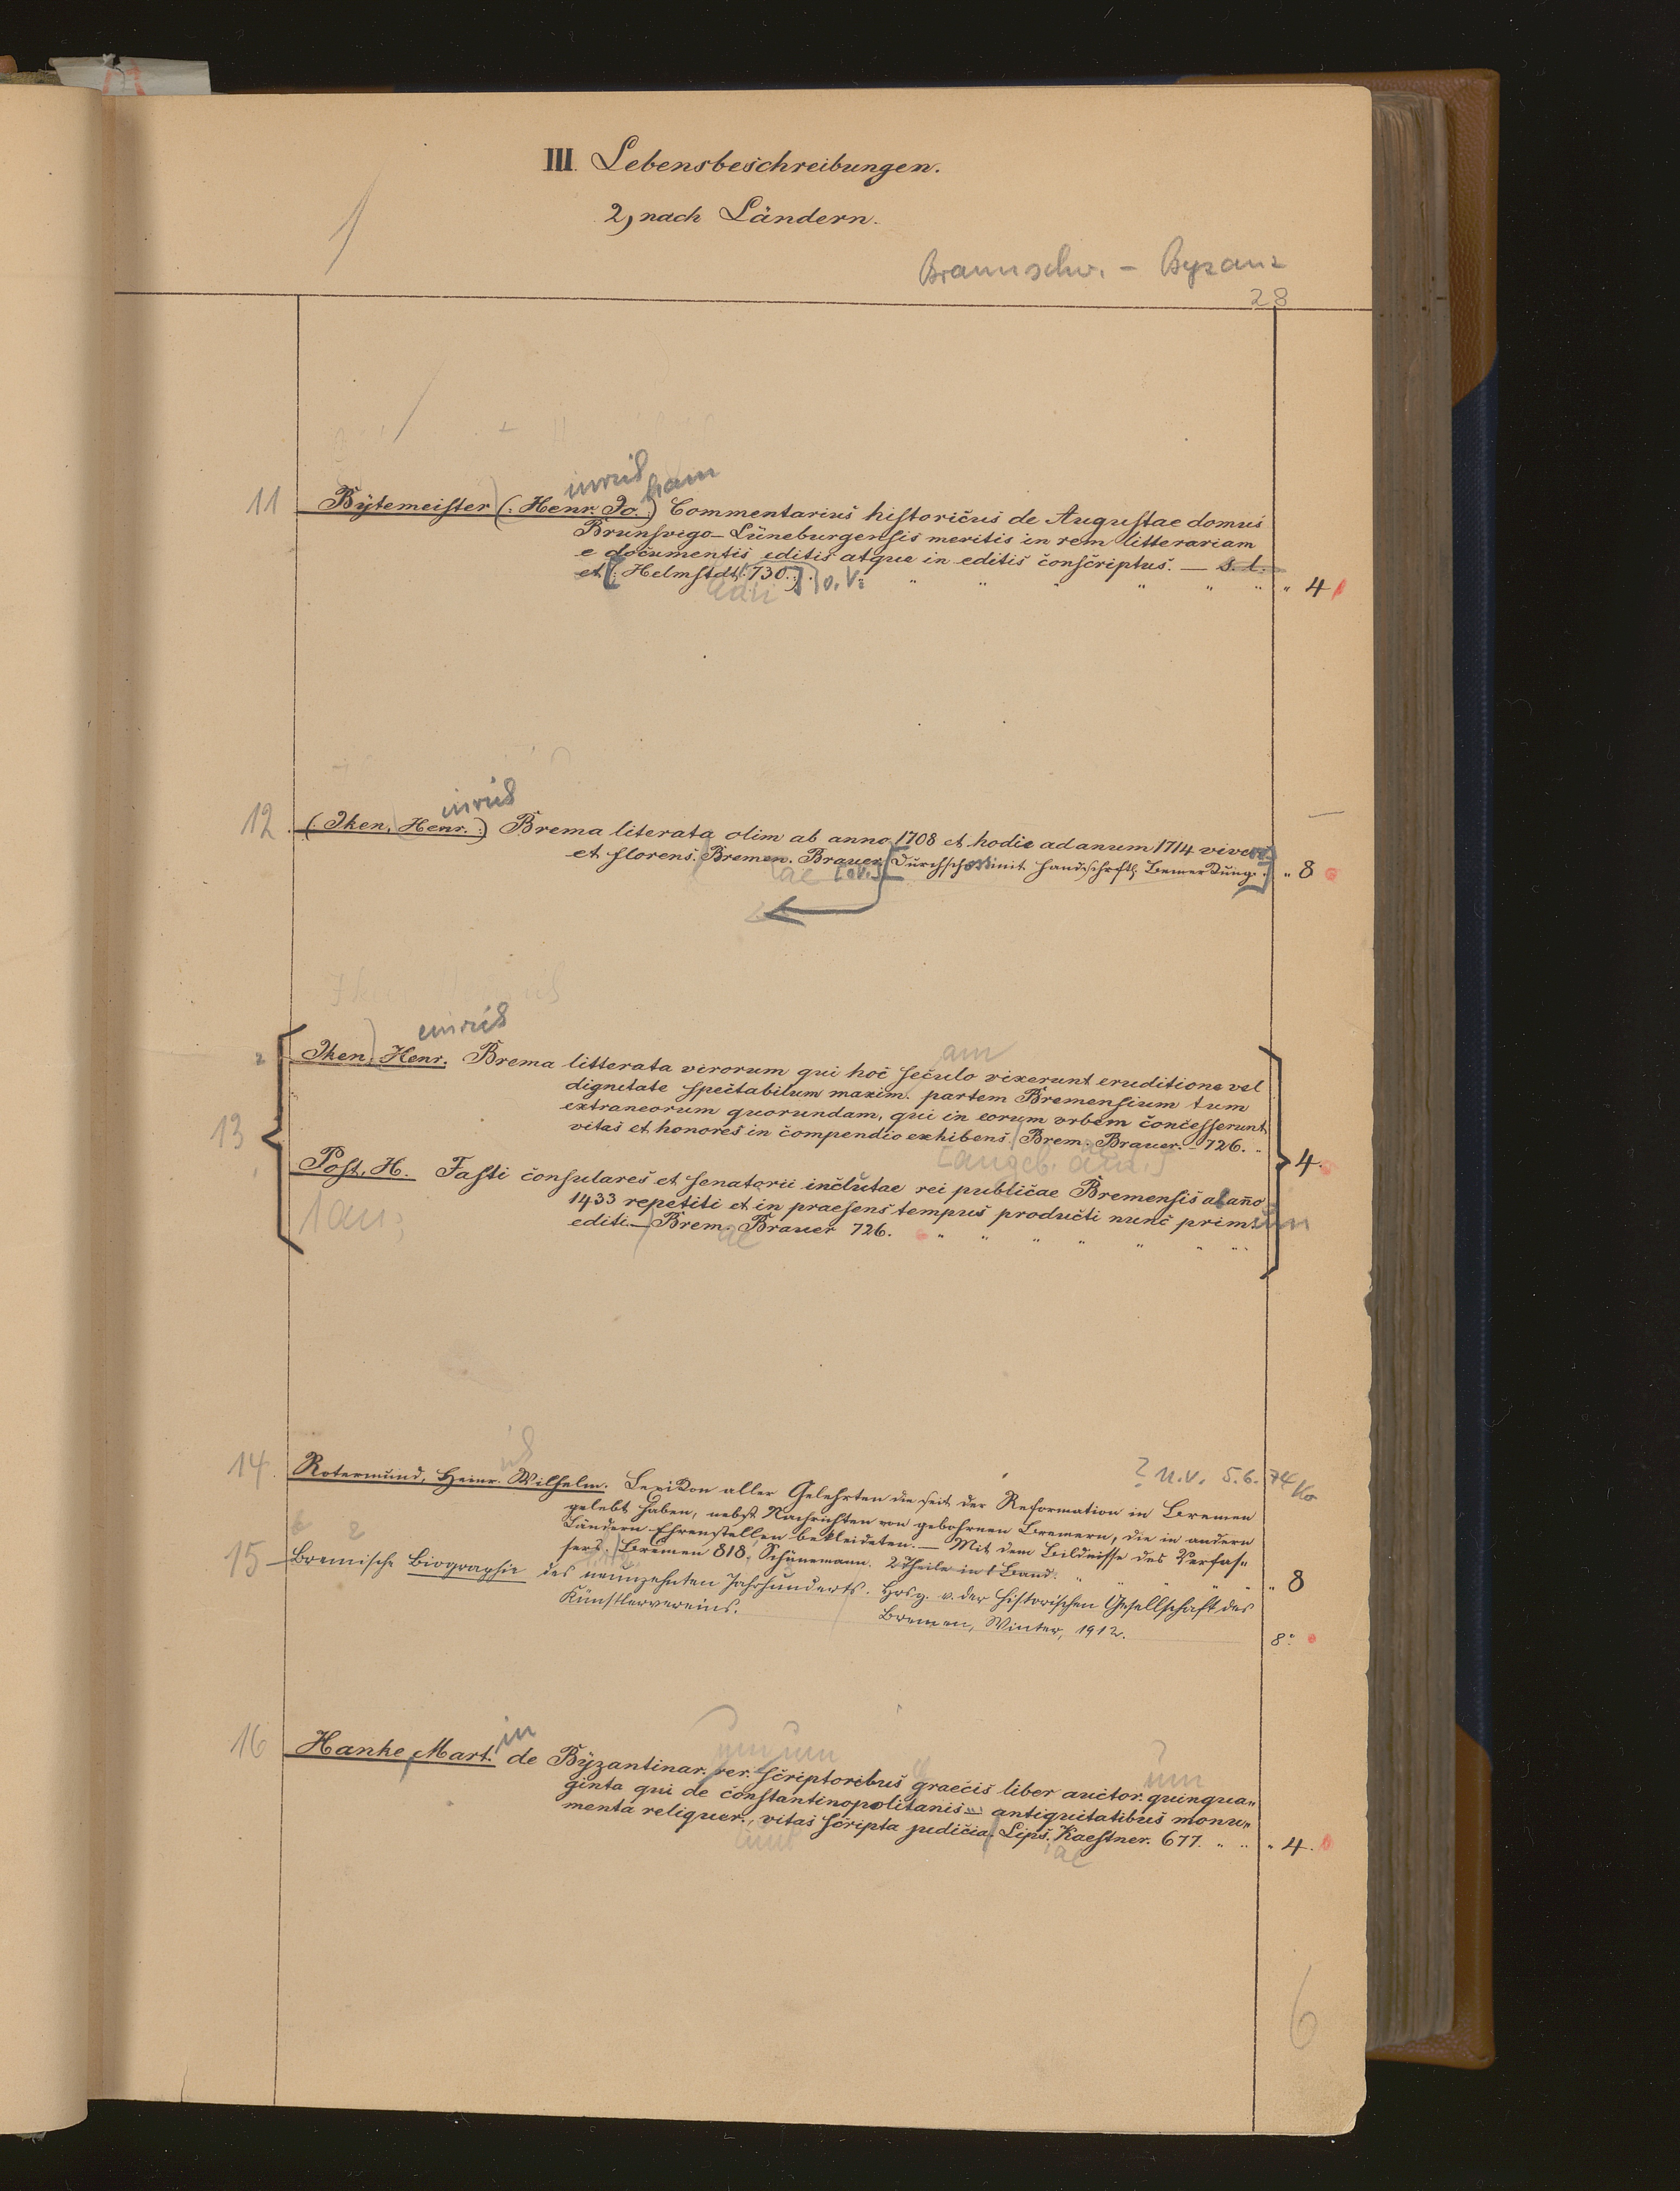 III. Lebensbeschreibungen.
2, nach Ländern.
Braunschw. - Byzanz
28
inrich ham
11 Bytemeister (: Henr. Jo. :) Commentarius historicus de Augustae domus
Brunsvigo-Lüneburgensis meritis in rem litterariam
e documentis editis atque in editis conscriptus. — s. l.
et [: Helmstdt. 730. :] o. V. " " " " " " " 4
adii
inrich
12. (: Iken, Henr. :) Brema literata olim ab anno 1708 et hodie ad anum 1714 vivens
et florens. Bremen. Brauer. [Durchschossen mit handschriftl. Bemerkung.] " 8
ae [o.V.]
einrich
2 Iken, Henr. Brema litterata virorum qui hoc seculo vixerunt eruditione vel
am
dignitate spectabilum maxim. partem Bremensium tum
extraneorum quorundam, qui in eorum orbem concesserunt,
13 vitas et honores in compendio exhibens. Brem. Brauer. 726. "
[angeb. an:] ae
Post, H. Fasti consulares et senatorii inclutae rei publicae Bremensis ab anno 4.
1433 repetiti et in praesens tempus producti nunc primum
1 an:
editi. — Brem. Brauer 726. " " " " " " "
ae
14. Rotermund, Heinr. Wilhelm. Lexikon aller Gelehrten die seit der Reformation in Bremen
ich
? n.v. 5.6.74 Ko
gelebt haben, nebst Nachrichten von gebohrnen Bremern, die in andern
Ländern Ehrenstellen bekleideten. — Mit dem Bildnisse des Verfas-
sers. Bremen 818. Schünemann. 2 Theile in 1 Band. " " " " " 8
15 Bremische Biographie des neunzehnten Jahrhunderts. Hrsg. v. der historischen Gesellschaft des
Künstlervereins. Bremen, Winter, 1912. 8°.
in
16 Hanke, Mart. de Byzantinar. rer. scriptoribus graecis liber auctor. quinqua-
um um um
ginta qui de constantinopolitanis antiquitatibus monu-
menta reliquer., vitas scripta judicia. Lips. Kaestner. 677. " " " 4.
unt ae
6